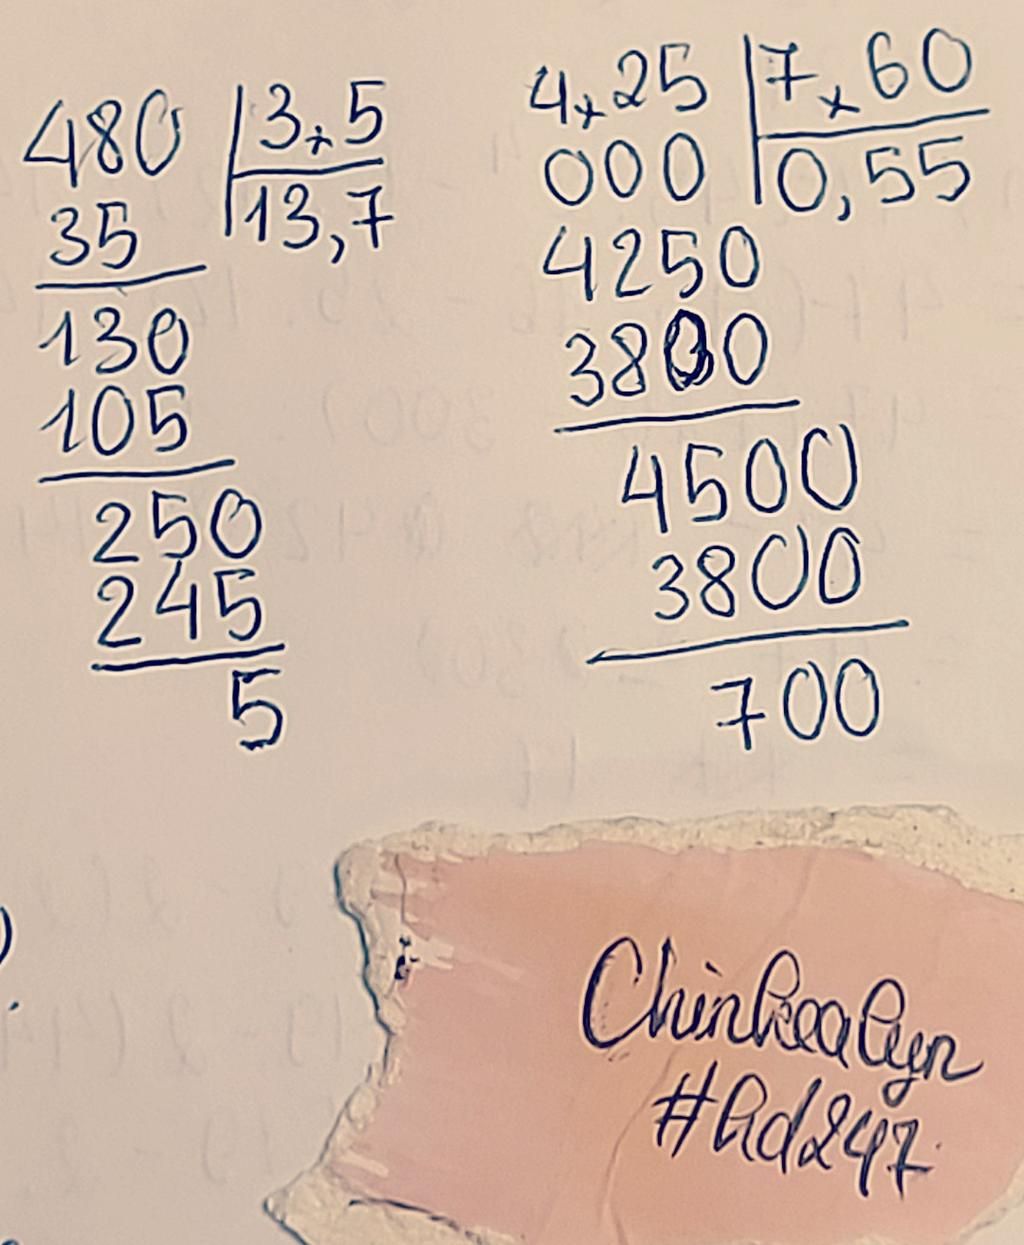 480 3,5
35 13,7
130
105
250
245
5
4,25 7,60
000 0,55
4250
3800
4500
3800
700
Chinkealyn
#hd247